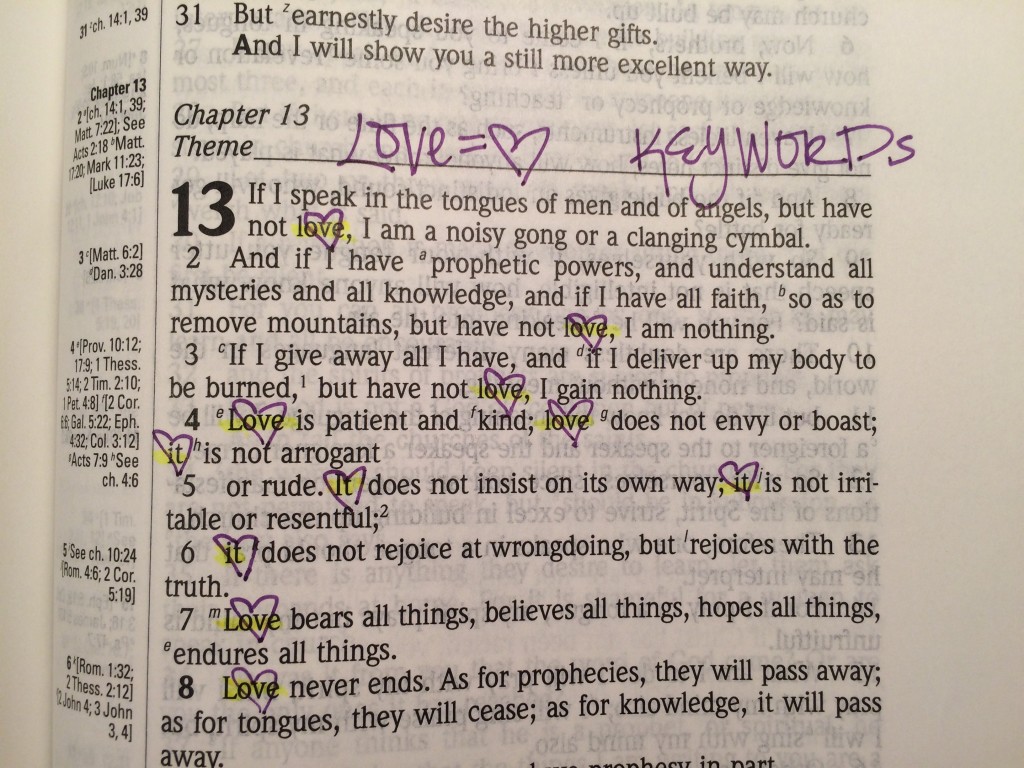 31 ᶻch. 14:1, 39
31 But ᶻearnestly desire the higher gifts.
And I will show you a still more excellent way.
Chapter 13
2 ᵃ[ch. 14:1, 39;
Matt. 7:22]; See
Acts 2:18 ᵇMatt.
17:20; Mark 11:23;
[Luke 17:6]
3 ᶜ[Matt. 6:2]
ᵈDan. 3:28
4 ᵉ[Prov. 10:12;
17:9; 1 Thess.
5:14; 2 Tim. 2:10;
1 Pet. 4:8] ᶠ[2 Cor.
6:6; Gal. 5:22; Eph.
4:32; Col. 3:12]
ᵍActs 7:9 ʰSee
ch. 4:6
5 ⁱSee ch. 10:24
ʲ[Rom. 4:6; 2 Cor.
5:19]
6 ᵏ[Rom. 1:32;
2 Thess. 2:12]
ˡ2 John 4; 3 John
3, 4]
Chapter 13
Theme LOVE = ♡ KEYWORDS
13 If I speak in the tongues of men and of angels, but have
not love, I am a noisy gong or a clanging cymbal.
2 And if I have ᵃprophetic powers, and understand all
mysteries and all knowledge, and if I have all faith, ᵇso as to
remove mountains, but have not love, I am nothing.
3 ᶜIf I give away all I have, and ᵈif I deliver up my body to
be burned,¹ but have not love, I gain nothing.
4 ᵉLove is patient and ᶠkind; love ᵍdoes not envy or boast;
it ʰis not arrogant
5 or rude. It does not insist on its own way; it ʲis not irri-
table or resentful;²
6 it does not rejoice at wrongdoing, but ˡrejoices with the
truth.
7 ᵐLove bears all things, believes all things, hopes all things,
ᵉendures all things.
8 Love never ends. As for prophecies, they will pass away;
as for tongues, they will cease; as for knowledge, it will pass
away.
prophesy in part